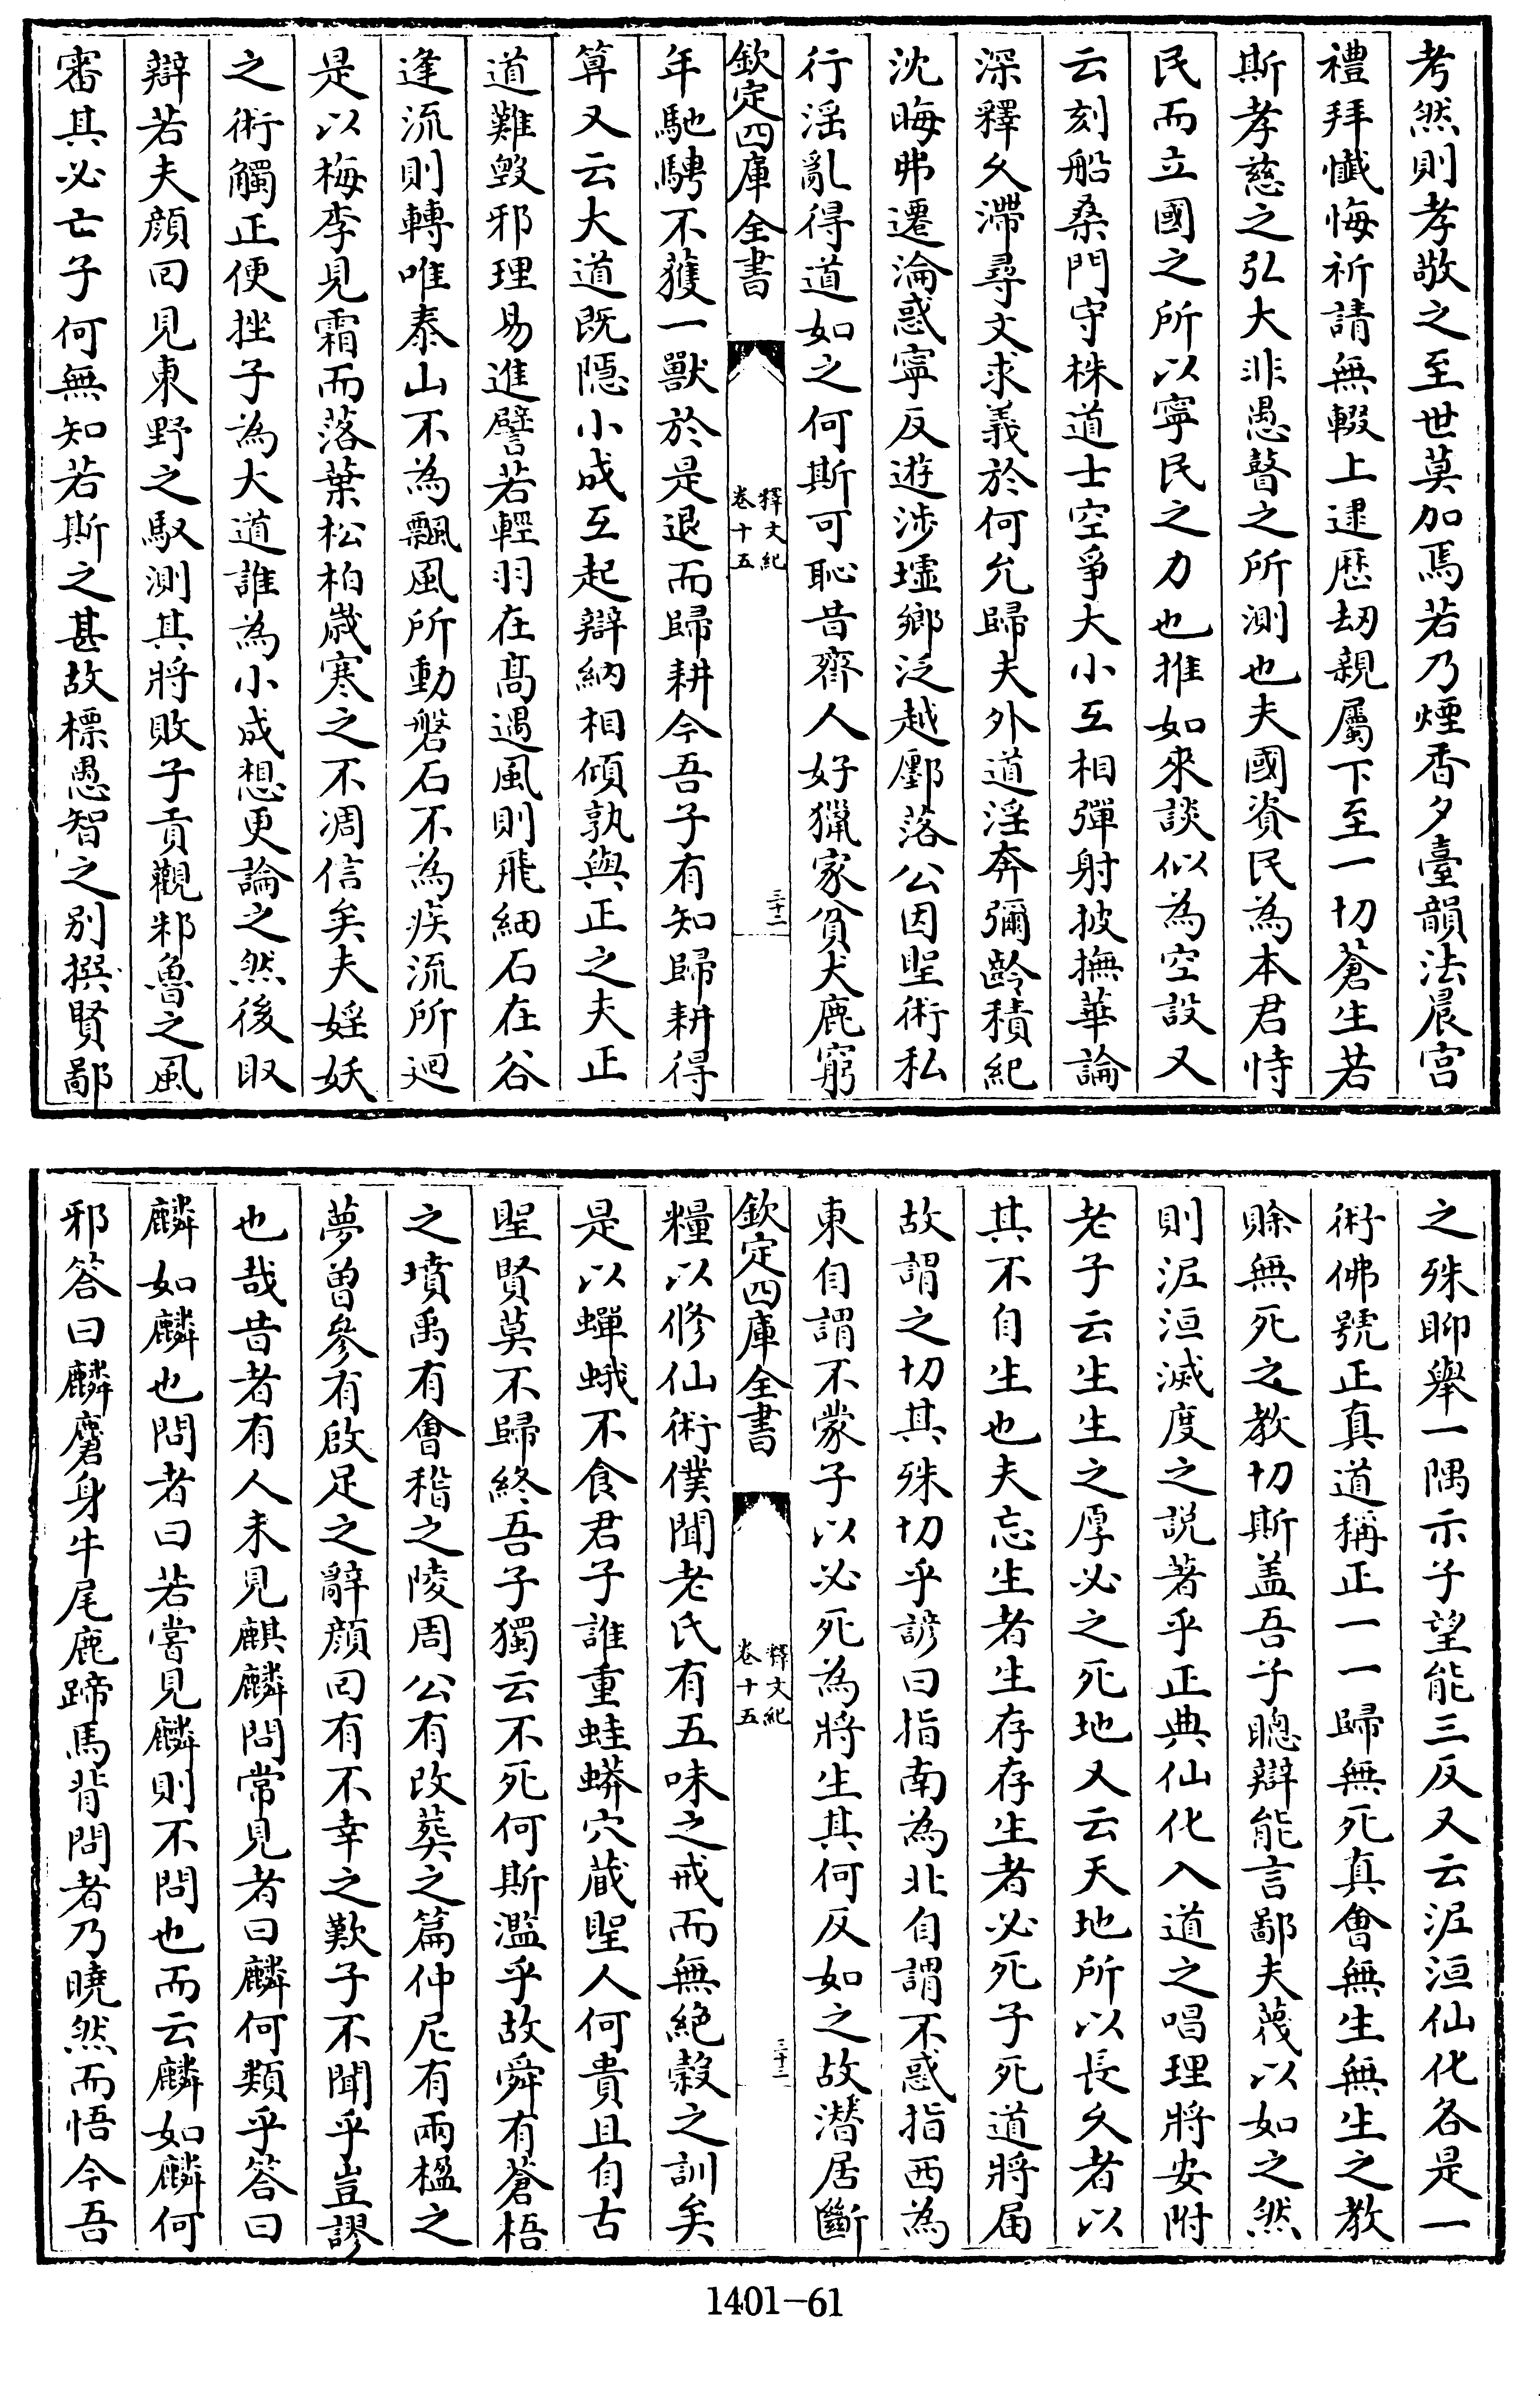 考然則孝敬之至世莫加焉若乃煙香夕臺韻法晨宫
禮拜懺悔祈請無輟上逮歴劫親屬下至一切蒼生若
斯孝慈之弘大非愚瞽之所測也夫國資民為本君恃
民而立國之所以寧民之力也推如來談似為空設又
云刻船桑門守株道士空爭大小互相彈射披撫華論
深釋久滯尋文求義於何允歸夫外道淫奔彌齡積紀
沈晦弗遷淪惑寧反遊涉墟鄉泛越鄽落公因聖術私
行淫亂得道如之何斯可恥昔齊人好獵家貧犬鹿窮
欽定四庫全書
釋文紀
卷十五
三十二
年馳騁不獲一獸於是退而歸耕今吾子有知歸耕得
算又云大道既隱小成互起辯納相傾孰與正之夫正
道難毀邪理易進譬若輕羽在髙遇風則飛細石在谷
逢流則轉唯泰山不為飄風所動磐石不為疾流所迴
是以梅李見霜而落葉松柏歳寒之不凋信矣夫婬妖
之術觸正便挫子為大道誰為小成想更論之然後取
辯若夫顔回見東野之馭測其將敗子貢觀邾魯之風
審其必亡子何無知若斯之甚故標愚智之别撰賢鄙
之殊聊舉一隅示子望能三反又云泥洹仙化各是一
術佛號正真道稱正一一歸無死真會無生無生之教
賒無死之教切斯盖吾子聰辯能言鄙夫蔑以如之然
則泥洹滅度之説著乎正典仙化入道之唱理將安附
老子云生生之厚必之死地又云天地所以長久者以
其不自生也夫忘生者生存存生者必死子死道將届
故謂之切其殊切乎諺曰指南為北自謂不惑指西為
東自謂不蒙子以必死為將生其何反如之故潜居斷
欽定四庫全書
釋文紀
卷十五
三十二
糧以修仙術僕聞老氏有五味之戒而無絶榖之訓矣
是以蟬蛾不食君子誰重蛙蟒穴藏聖人何貴且自古
聖賢莫不歸終吾子獨云不死何斯濫乎故舜有蒼梧
之墳禹有會稽之陵周公有改葬之篇仲尼有兩楹之
夢曽參有啟足之辭顔回有不幸之歎子不聞乎豈謬
也哉昔者有人未見麒麟問常見者曰麟何類乎答曰
麟如麟也問者曰若嘗見麟則不問也而云麟如麟何
邪答曰麟麏身牛尾鹿蹄馬背問者乃曉然而悟今吾
1401-61